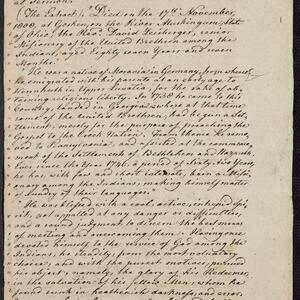 at Sermon.
(The Extract) "Died on the 17th November,
1808, at Goshen, on the River Muskingum, State
of Ohio, the Revd David Zeisberger, senior
Missionary of the United Brethren among the
Indians, aged Eighty seven Years and seven
Months.
He was a native of Moravia in Germany, from whence
he emigrated with his parents at an early age to
Herrnhuth in Upper Lusatia, for the sake of ob-
taining religious liberty. In 1738 he came to this
Country, landed in Georgia where at that time
some of the united Brethren, had begun a settle-
ment, for the purpose of preaching the
Gospel to the Creek Nation. From thence he remo-
ved to Pennsylvania, and assisted at the commence-
ment of the Settlements of Bethlehem and Nazareth.
From since the Year 1746, a period of Sixty two Years,
he has with few and short intervals, been a Missio-
nary among the Indians, making himself master
of many of their languages."
"He was blessed with a cool, active, intrepid spi-
rit, not appalled at any danger or difficulties,
and a sound judgment to discern the best means
of meeting and overcoming them. Having once
devoted himself to the service of God among the
Indians, he steadily, from the most voluntary
choice, and with the purest motives, pursued
his object; namely, the glory of his Redeemer,
in the salvation of his fellow Men, whom he
found sunk in heathenish darkness, and error.